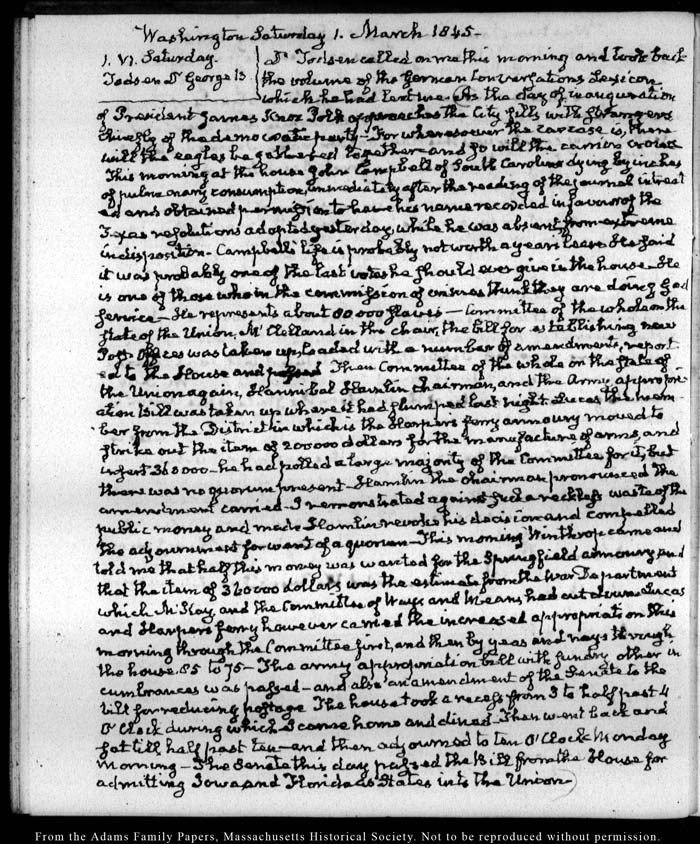 Washington Saturday 1. March 1845-
1. VI. Saturday.
Todsen Dr George B
Dr Todsen called on me this morning and took back
the volume of the German Conversations Lexicon
which he had lent me. As the day of inauguration
of President James Knox Polk approaches the City fills with strangers
chiefly of the democratic party - For wheresoever the carcase is, there
will the eagles be gathered together - and so will the carrion crows
This morning at the house John Campbell of South Carolina dying by inches
of pulmonary consumption, immediately after the reading of the journal intreat
ed and obtained permission to have his name recorded in favour of the
Texas resolutions adopted yesterday, while he was absent from extreme
indisposition - Campbell's life is probably not worth a years lease. He said
it was probably one of the last votes he should ever give in the house - He
is one of those who in the commission of crimes think they are doing God
service - He represents about 00.000 slaves - Committee of the whole on the
State of the Union, McClelland in the chair, the bill for establishing new
Post Offices was taken up, loaded with a number of amendments, report
ed to the House and passed Then Committee of the whole on the State of
the Union again, Hannibal Hamlin chairman, and the Army appropri
ation Bill was taken up where it had slumped last night. Lucas the mem
ber from the District in which is the Harpers ferry armoury moved to
strike out the item of 200000 dollars for the manufacture of arms, and
insert 360000 - he had polled a large majority of the Committee for it, but
there was no quorum present - Hamlin the chairman pronounced the
amendment carried - I remonstrated against such a reckless waste of the
public money and made Hamlin revoke his decision and compelled
the adjournment for want of a quorum - This morning Winthrop came and
told me that half this money was wanted for the Springfield armoury and
that the item of 360000 dollars was the estimate from the War Department
which McKay, and the Committee of Ways and Means, had cut down. Lucas
and Harpers ferry however carried the increased appropriation this
morning through the Committee first, and then by yeas and nays through
the house. 85 to 75 - The army appropriation bill with sundry other in
cumbrances was passed - and also an amendment of the Senate to the
bill for reducing postage The house took a recess from 3 to half past 4
O'Clock during which I came home and dined - Then went back and
sat till half past ten - and then adjourned to ten O'Clock Monday
morning - The Senate this day passed the Bill from the House for
admitting Iowa and Florida as States into the Union
From the Adams Family Papers, Massachusetts Historical Society. Not to be reproduced without permission.